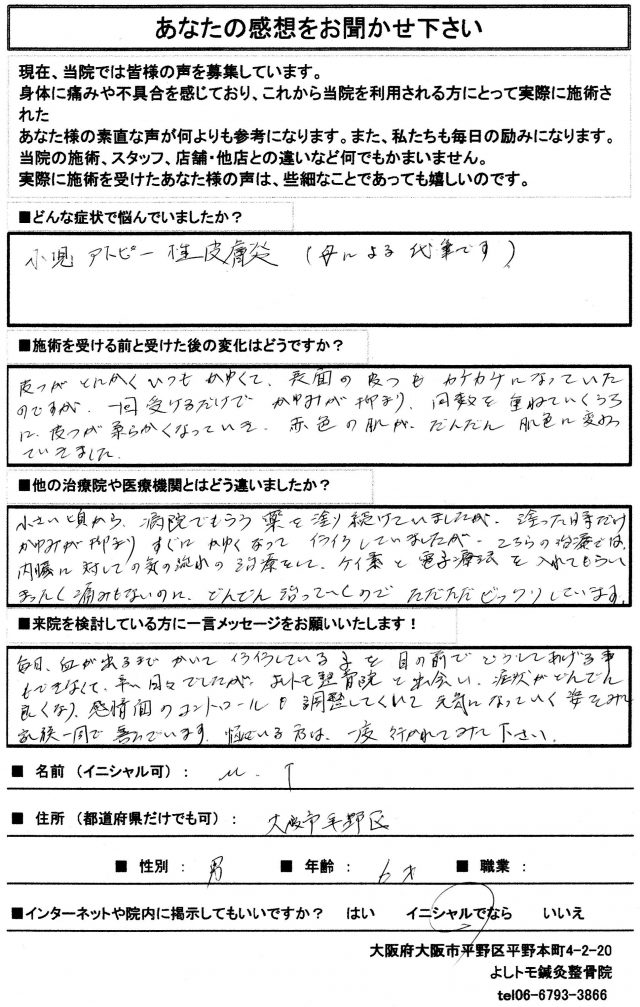 あなたの感想をお聞かせ下さい
現在、当院では皆様の声を募集しています。
身体に痛みや不具合を感じており、これから当院を利用される方にとって実際に施術さ
れた
あなた様の素直な声が何よりも参考になります。また、私たちも毎日の励みになります。
当院の施術、スタッフ、店舗・他店との違いなど何でもかまいません。
実際に施術を受けたあなた様の声は、些細なことであっても嬉しいのです。
■どんな症状で悩んでいましたか？
小児 アトピー性皮膚炎 (母による代筆です)
■施術を受ける前と受けた後の変化はどうですか？
皮フがとにかくいつもかゆくて、表面の皮フもカサカサになっていた
のですが、一回受けるだけでかゆみが抑まり、回数を重ねていくうち
に、皮フが柔らかくなっていき、赤色の肌が、だんだん肌色に変わっ
ていきました。
■他の治療院や医療機関とはどう違いましたか？
小さい頃から、病院でもらう薬を塗り続けていましたが、塗った時だけ
かゆみが抑まり すぐにかゆくなって イライラしていましたが、こちらの治療では、
内臓に対しての気の流れの治療をして、ケイ素と電子療法を入れてもらい
まったく痛みもないのに、どんどん治っていくので ただただビックリしています。
■来院を検討している方に一言メッセージをお願いいたします！
毎日、血が出るまでかいてイライラしている子を目の前でどうしてあげる事
もできなくて、辛い日々でしたが、よしトモ整骨院と出会い、症状がどんどん
良くなり、感情面のコントロールも調整してくれて 元気になっていく姿をみて
家族一同で喜んでいます。悩んでいる方は、一度行かれてみて下さい。
■ 名前（イニシャル可）： M. T
■ 住所（都道府県だけでも可）： 大阪市平野区
■ 性別： 男 ■ 年齢： 6才 ■ 職業：
■インターネットや院内に掲示してもいいですか？ はい イニシャルでなら いいえ
大阪府大阪市平野区平野本町4-2-20
よしトモ鍼灸整骨院
tel06-6793-3866